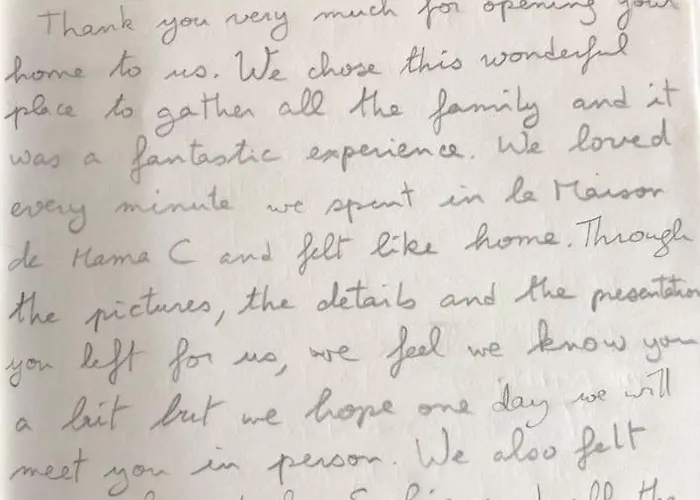 Thank you very much for opening your
home to us. We chose this wonderful
place to gather all the family and it
was a fantastic experience. We loved
every minute we spent in la Maison
de Mama C and felt like home. Through
the pictures, the details and the presentation
you left for us, we feel we know you
a bit but we hope one day we will
meet you in person. We also felt
all the